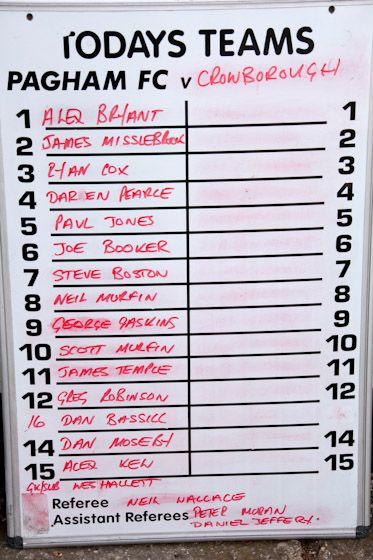 TODAYS TEAMS
PAGHAM FC v CROWBOROUGH
1 ALEX BRYANT 1
2 JAMES MISSLEBROOK 2
3 RYAN COX 3
4 DARREN PEARCE 4
5 PAUL JONES 5
6 JOE BOOKER 6
7 STEVE BOSTON 7
8 NEIL MURFIN 8
9 GEORGE GASKINS 9
10 SCOTT MURFIN 10
11 JAMES TEMPLE 11
12 GREG ROBINSON 12
16 DAN BASSILL
14 DAN MOSEBY 14
15 ALEX KEW 15
GK/SUB WES HALLETT
Referee NEIL WALLACE
Assistant Referees PETER MORAN
DANIEL JEFFERY.